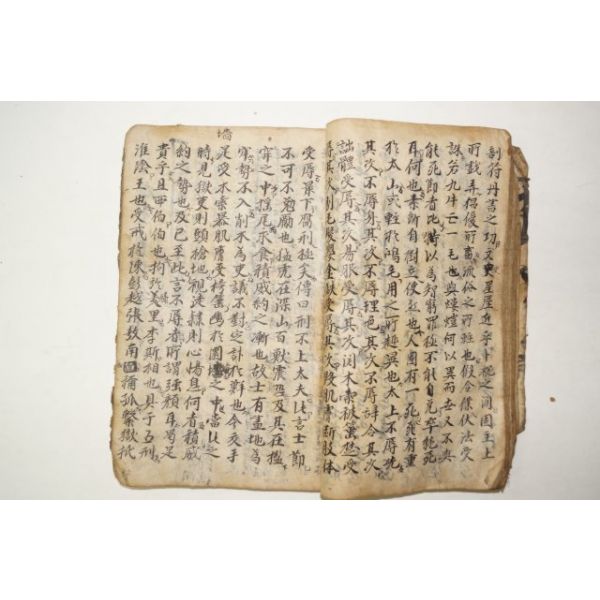 剖符丹書之功文史星曆近乎卜祝之間固主上
所戱弄倡優所畜流俗之所輕也假令僕伏法受
誅若九牛亡一毛也與螻螘何以異而世又不與
能死節者比特以爲智窮罪極不能自免卒就死
耳何也素所自樹立使然也人固有一死死有重
於太山或輕於鴻毛用之所趍異也太上不辱先
其次不辱身其次不辱理色其次不辱辭令其次
詘體受辱其次易服受辱其次関木索被箠楚受
辱其次剔毛髮嬰金鉄受辱其次毁肌膚斷肢体
受辱最下腐刑極矣傳曰刑不上大夫此言士節
不可不勉勵也猛虎在深山百獸震恐及其在檻
穽之中搖尾求食積威約之漸也故士有畫地爲
牢勢不入削木爲吏議不對定計於鮮也今交手
足受木索暴肌膚受榜箠幽於圜墻之中當此之
墻
時見獄吏則頭槍地視徒隷則心惕息何者積威
約之勢也及已至此言不辱者所謂強顔耳曷足
貴乎且西伯伯也拘於羑里李斯相也具于五刑
淮陰王也受戒於陳彭越張敖南面稱孤繫獄抵